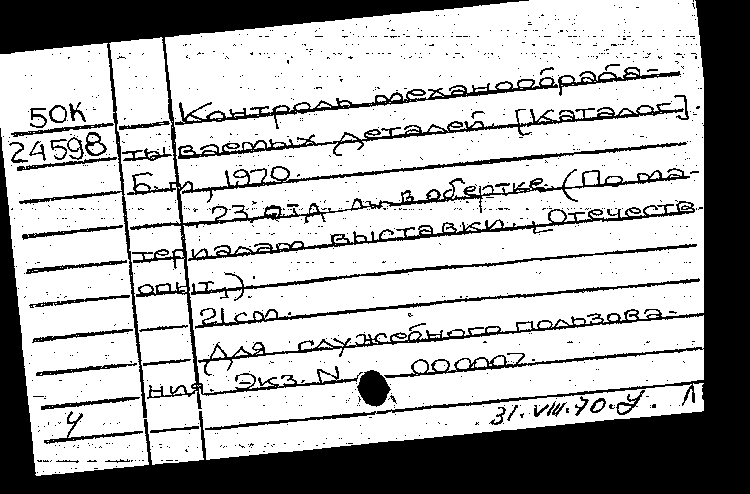 50К Контроль механообраба-
24598 тываемых деталей. [Каталог].
Б. м., 1970.
23 отд. л. в обертке (По ма-
териалам выставки „Отечеств.
опыт„).
21 см.
Для служебного пользова-
ния. Экз. N 000007.
У 31.VIII.70.У.